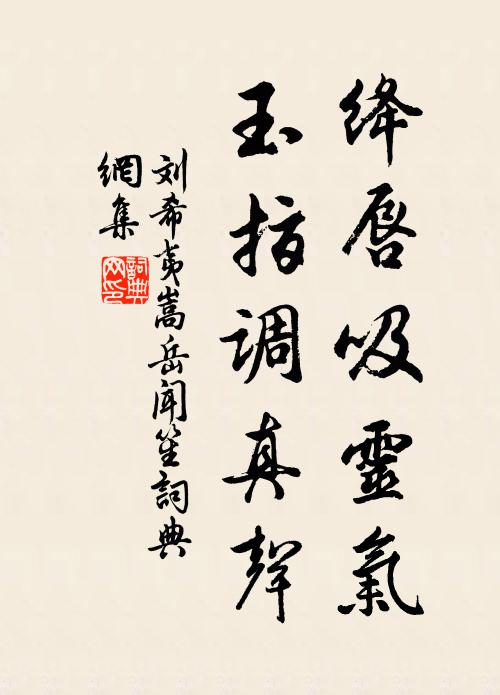 绛唇吸靈氣
玉指调真聲
刘希夷嵩岳闻笙詞典
網集
詞典
网印